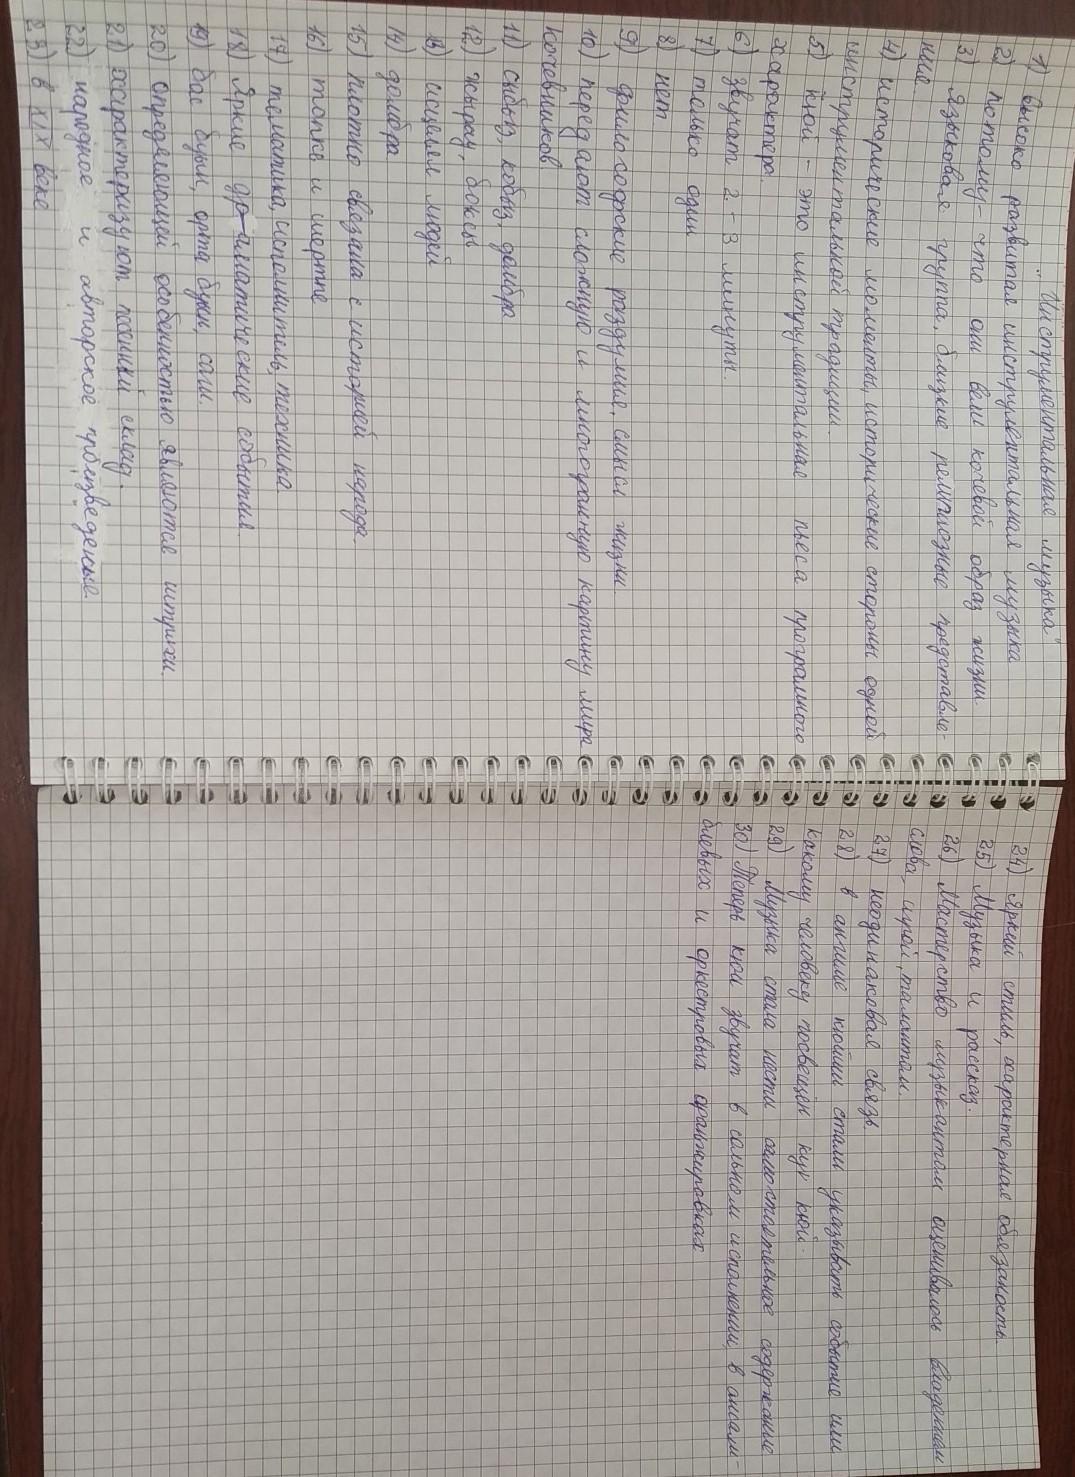 "Инструментальная музыка"
1) Высоко развитая инструментальная музыка
2) потому-что они вели кочевой образ жизни.
3) Языковая группа, близкие религиозные представле-
ния
4) исторические моменты, исторические стороны одной
инструментальной традиции
5) Кюй - это инструментальная пьеса програмного
характера.
6) звучат 2-3 минуты.
7) только один
8) нет
9) философские раздумие, смысл жизни.
10) передают сложную и многогранную картину мира
кочевников
11) сыбызг, кобыз, домбра
12) жырау, баксы
13) исцелял людей
14) домбра
15) плотно связана с историей народа
16) топка и шертпе
17) тематика, исполнитель, техника.
18) Яркие драматические события
19) бас буын, орта буын, саги.
20) определяющей особенностью являются штрихи.
21) характеризуют песенный склад.
22) народное и авторское произведение.
23) в XIX веке
24) Яркий стиль, характерная обязаность.
25) Музыка и рассказ.
26) Мастерство музыкантом оценивалось владением
слова, игрой, талантом.
27) неодинаковая связь.
28) в ангиме кюйши стали указывать событие или
какому человеку посвещён куи кюй.
29) Музыка стала нести самостоятельное содержание
30) Теперь кюи звучат в сольном исполнении, в ансам-
блевых и оркестровых аранжировках